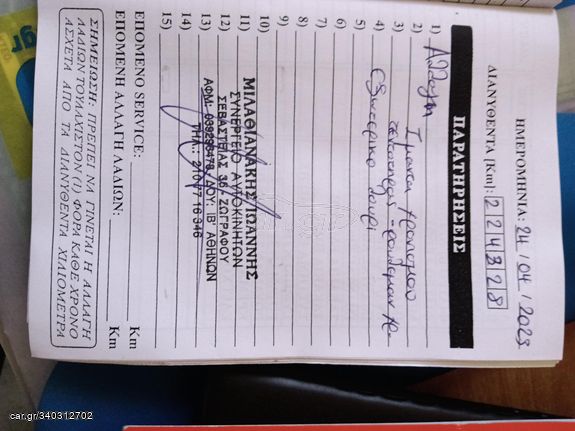 ΗΜΕΡΟΜΗΝΙΑ: 24 / 04 / 2023
ΔΙΑΝΥΘΕΝΤΑ [Km]: 224328
ΠΑΡΑΤΗΡΗΣΕΙΣ
1) Αλλαγη
2) Ιμαντα χρονισμου
3)
4) Εξωτερικο ιμαντ
5)
6)
7)
8)
9)
10)
11)
12)
13)
14)
15)
ΜΙΛΑΘΙΑΝΑΚΗΣ ΙΩΑΝΝΗΣ
ΣΥΝΕΡΓΕΙΟ ΑΥΤΟΚΙΝΗΤΩΝ
ΣΕΒΑΣΤΕΙΑΣ 36, ΖΩΓΡΑΦΟΥ
ΔΟΥ: ΙΒ' ΑΘΗΝΩΝ
ΤΗΛ.: 210 77 16 346
ΕΠΟΜΕΝΟ SERVICE: Km
ΕΠΟΜΕΝΗ ΑΛΛΑΓΗ ΛΑΔΙΩΝ: Km
ΣΗΜΕΙΩΣΗ: ΠΡΕΠΕΙ ΝΑ ΓΙΝΕΤΑΙ Η ΑΛΛΑΓΗ
ΛΑΔΙΩΝ ΤΟΥΛΑΧΙΣΤΟΝ (1) ΦΟΡΑ ΚΑΘΕ ΧΡΟΝΟ
ΑΣΧΕΤΑ ΑΠΟ ΤΑ ΔΙΑΝΥΘΕΝΤΑ ΧΙΛΙΟΜΕΤΡΑ
gr
car.gr/340312702